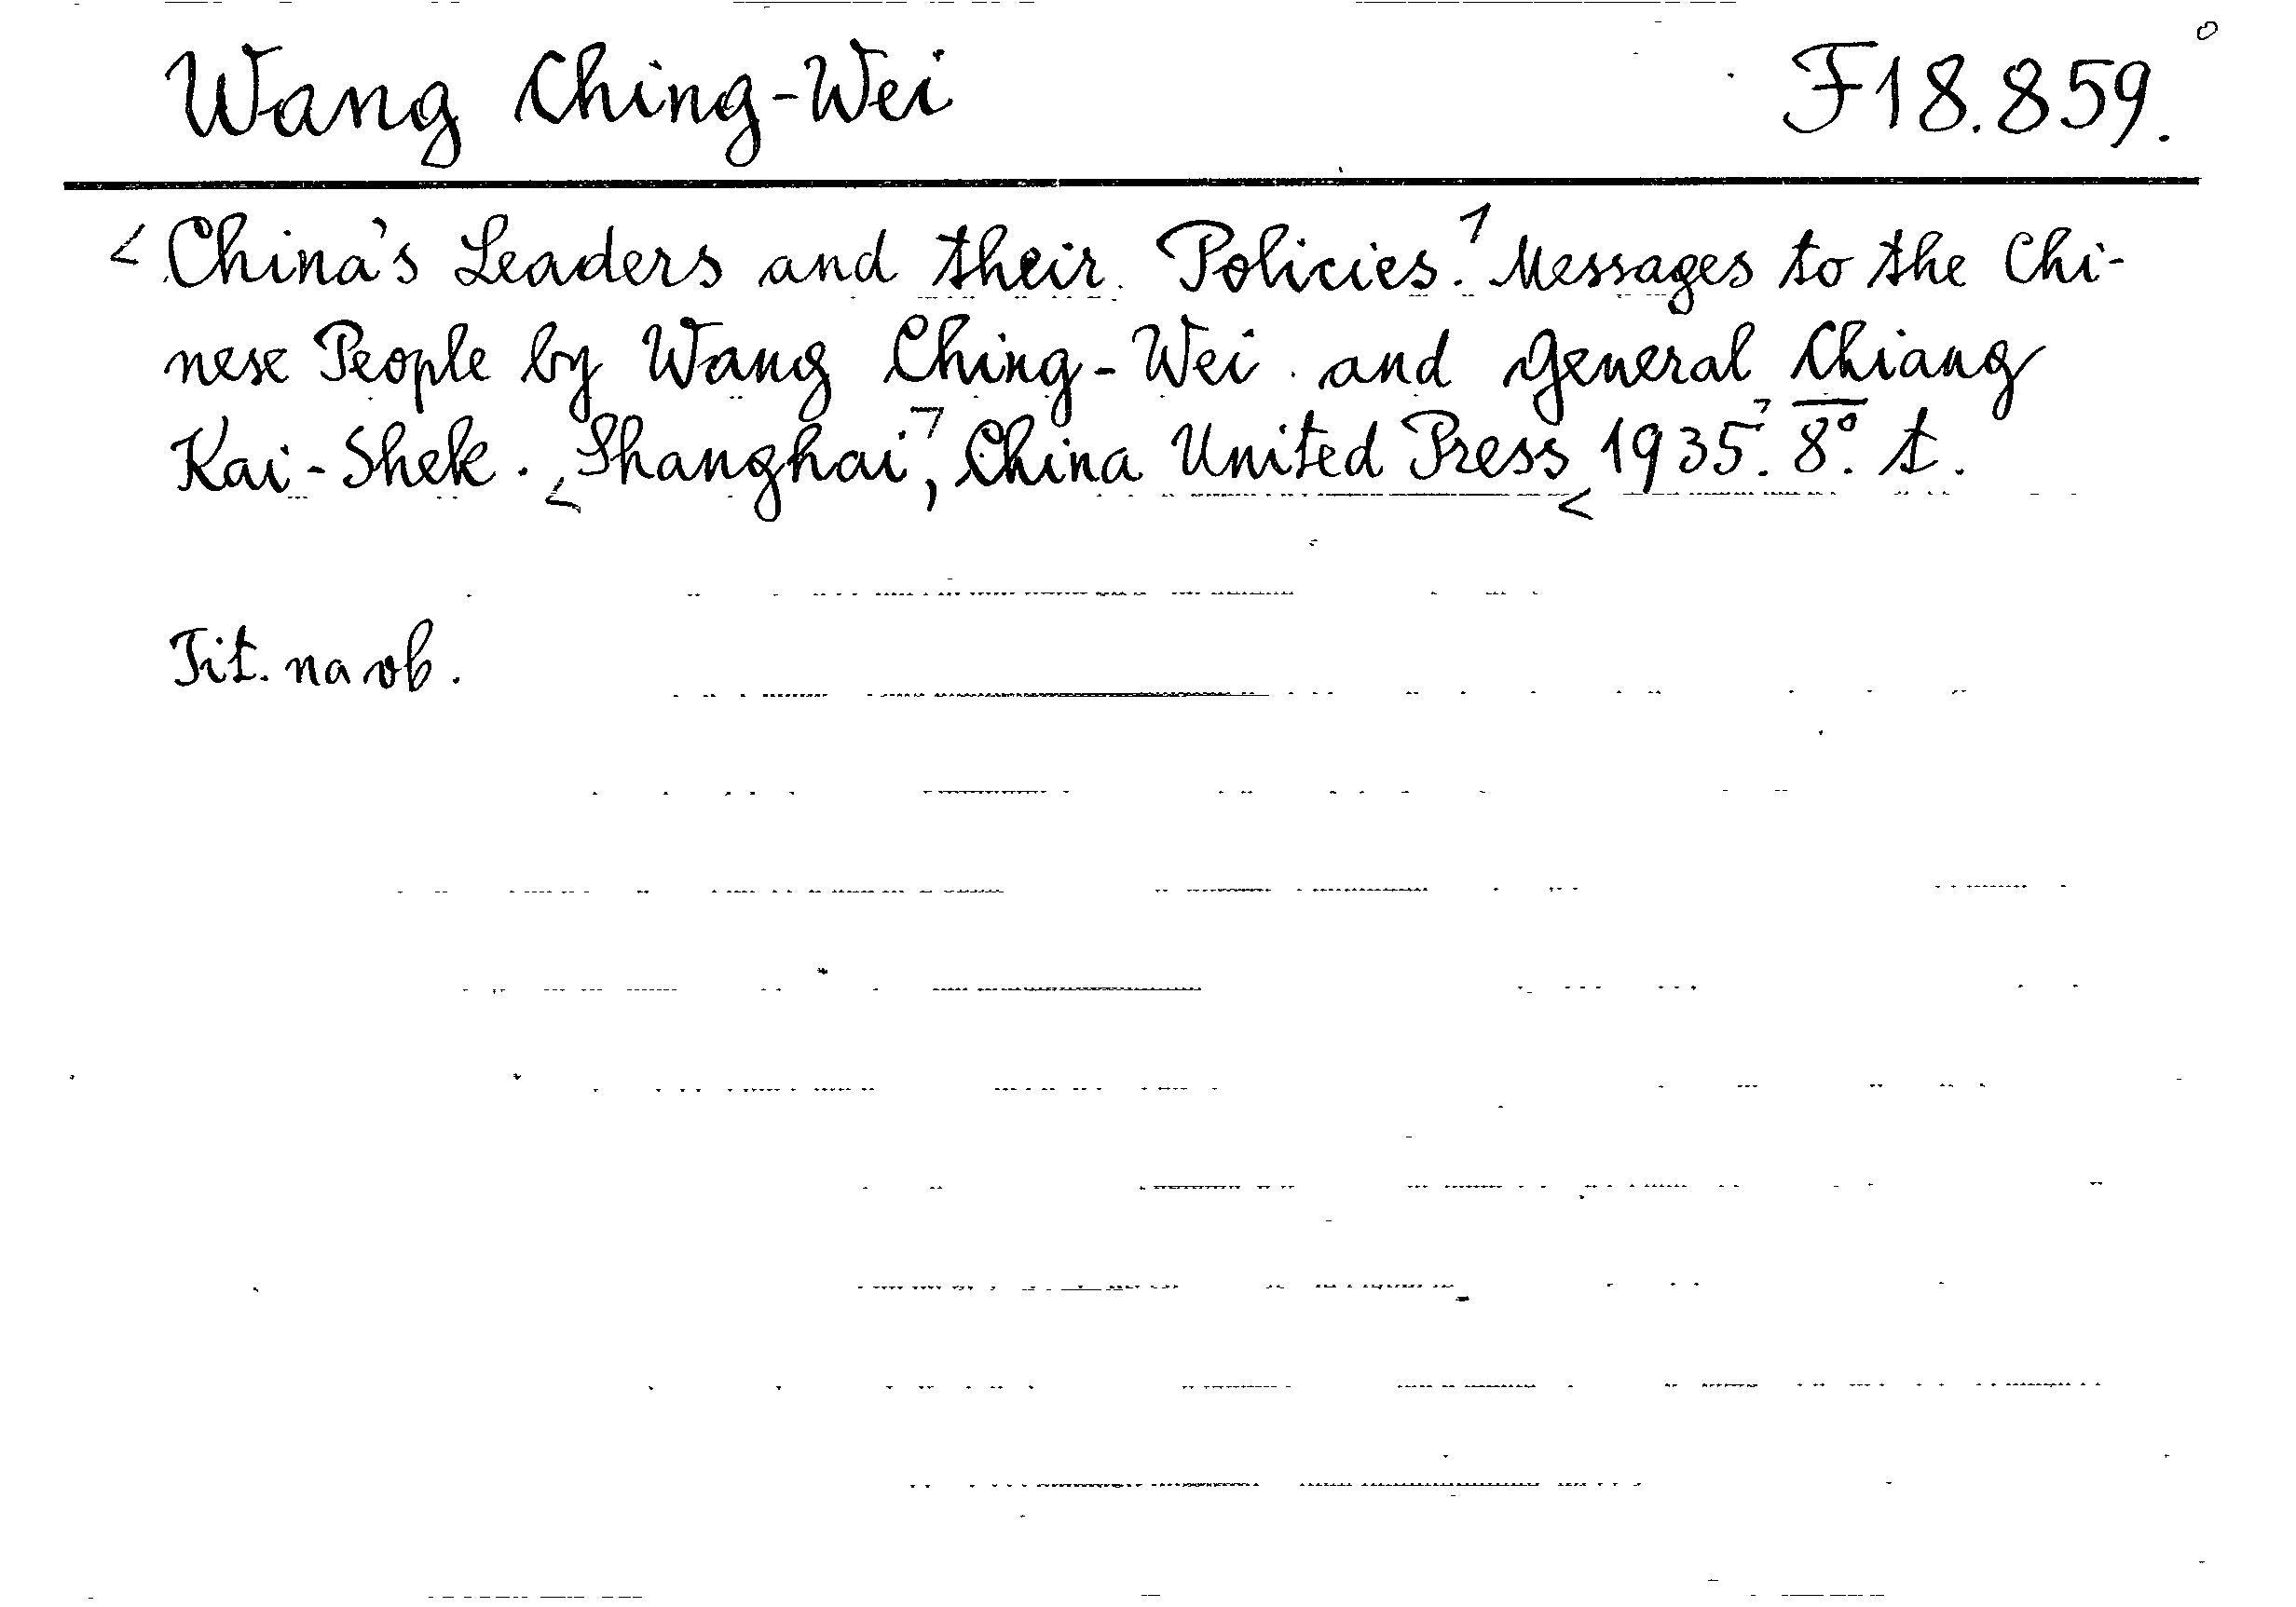 Wang Ching-Wei F18.859.
<China's Leaders and their Policies.> Messages to the Chi-
nese People by Wang Ching-Wei and General Chiang
Kai-Shek. <Shanghai>, China United Press <1935>. 8°. t.
Tit. na ob.